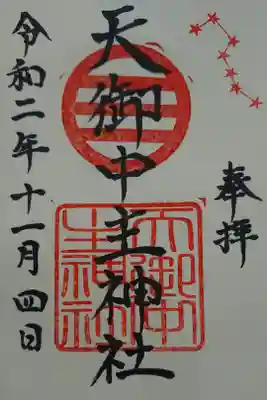 奉拝
天御中主神社
令和二年十一月四日
天御中
主神社